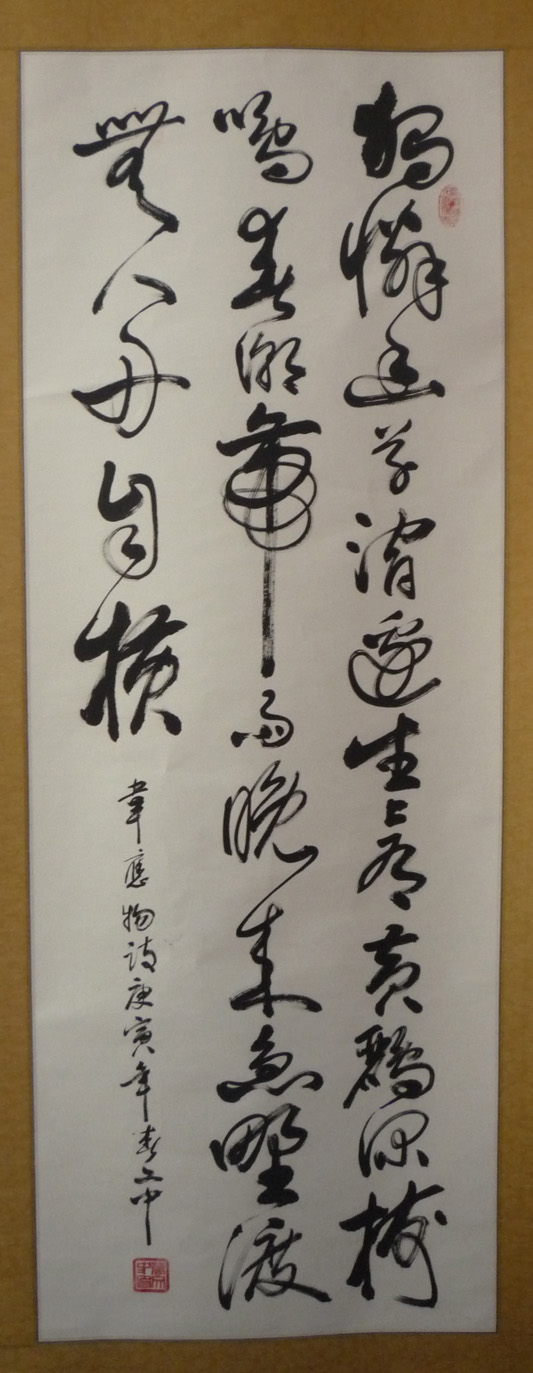 獨憐幽草澗邊生上有黃鸝深樹
鳴春潮帶雨晚來急野渡
無人舟自橫
韋應物詩庚寅年春中